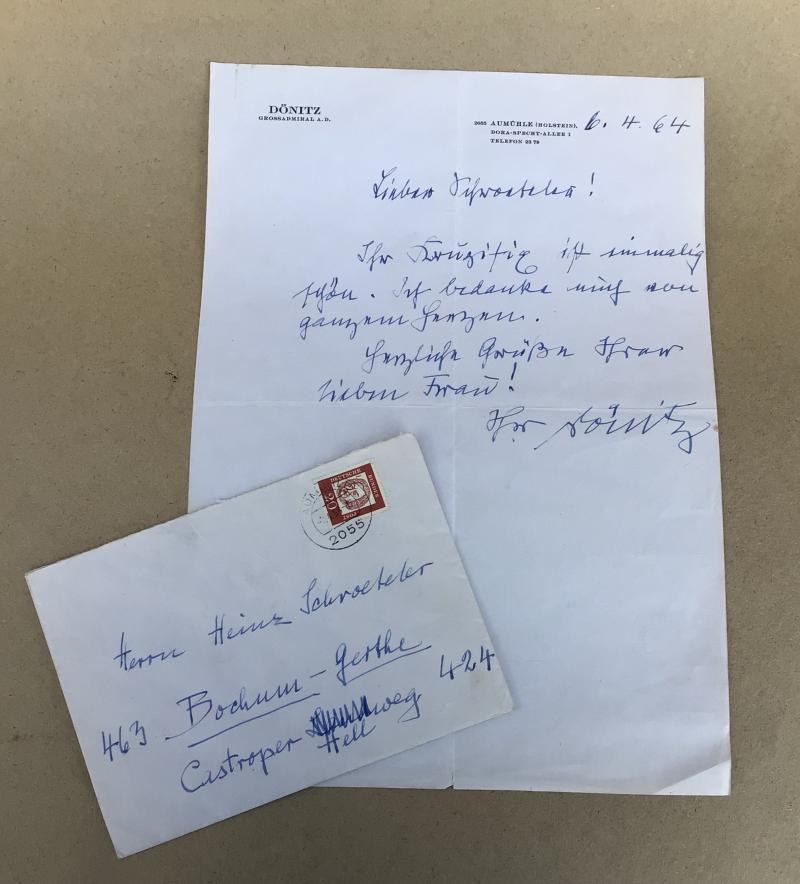 DÖNITZ
GROSSADMIRAL A.D.
2055 AUMÜHLE (HOLSTEIN), 6. 4. 64
DORA-SPECHT-ALLEE 1
TELEFON 23 79
Lieber Schroeteler!
Ihr Kruzifix ist einmalig
schön. Ich bedanke mich von
ganzem Herzen.
Herzliche Grüße Ihrer
lieben Frau!
Ihr Dönitz
DEUTSCHE
BUNDES
20
2055
Herrn Heinz Schroeteler
463 Bochum-Gerthe
Castroper weg 424
Hell